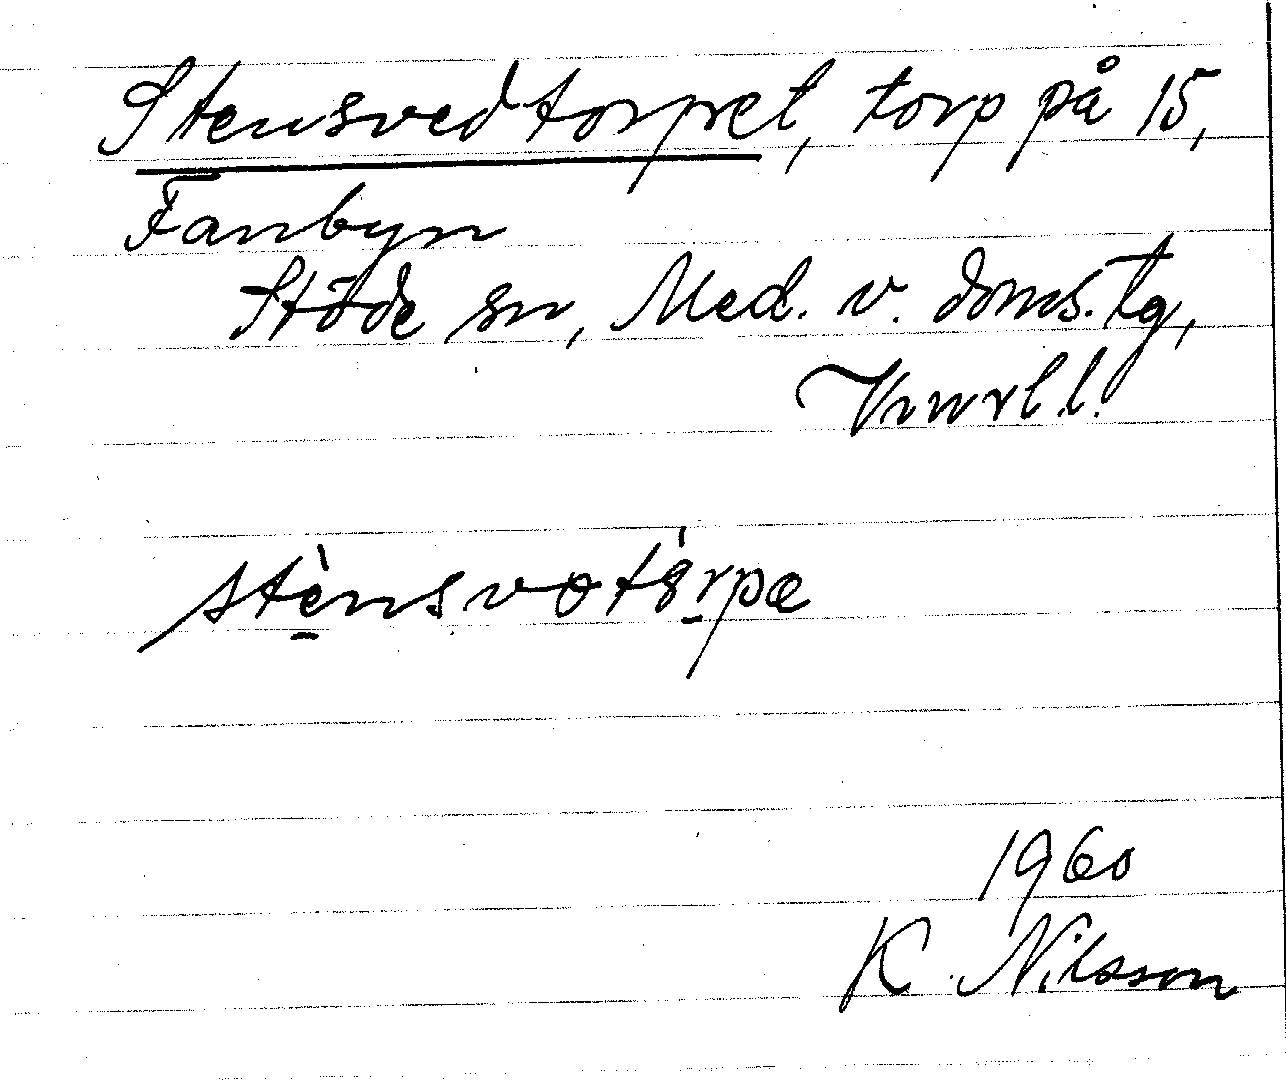 Stensvedtorpet, torp på 15,
Fanbyn
Stöde sn, Med. v. doms. tg,
Vnrl l.
stènsvɵtɞ̀rpæ
1960
K. Nilsson